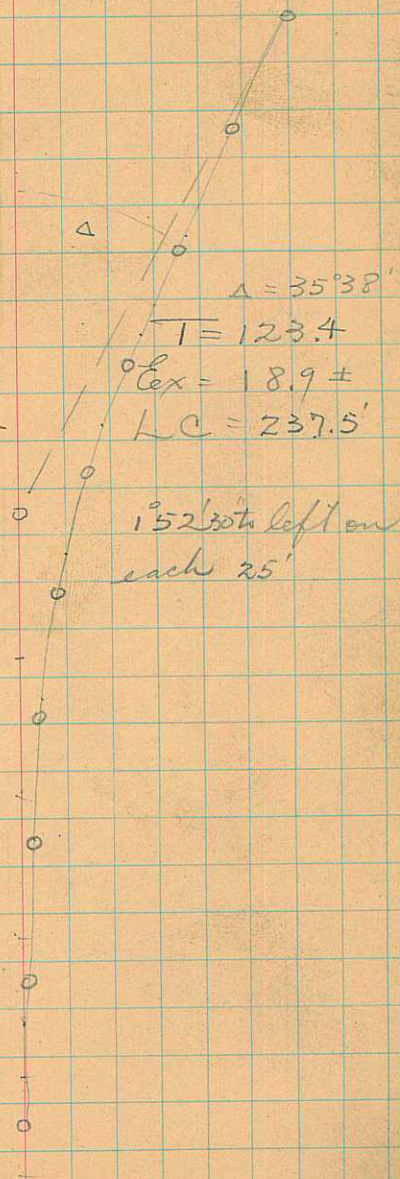 Δ
Δ = 35°38'
T = 123.4
Ex = 18.9 ±
LC = 237.5'
1°52'30" to left on
each 25'